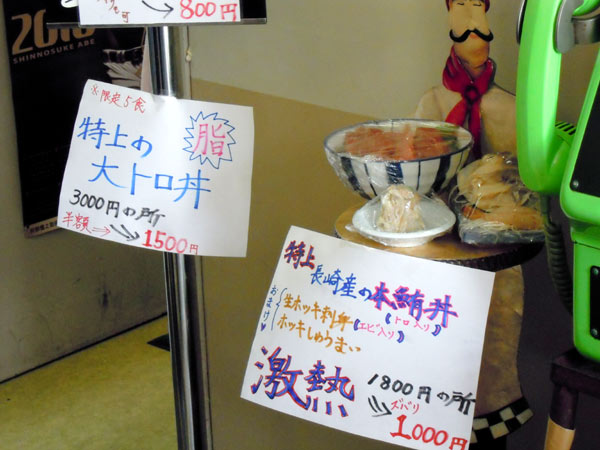 800円
2010
SHINNOSUKE ABE
※限定5食
特上の
脂
大トロ丼
3000円の所
半額→
1500円
特上
長崎産の本鮪丼
(トロ入り)
おまけ
生ホッキ刺身(エビ入り)
ホッキしゅうまい
激熱
1800円の所
ズバリ
1,000円